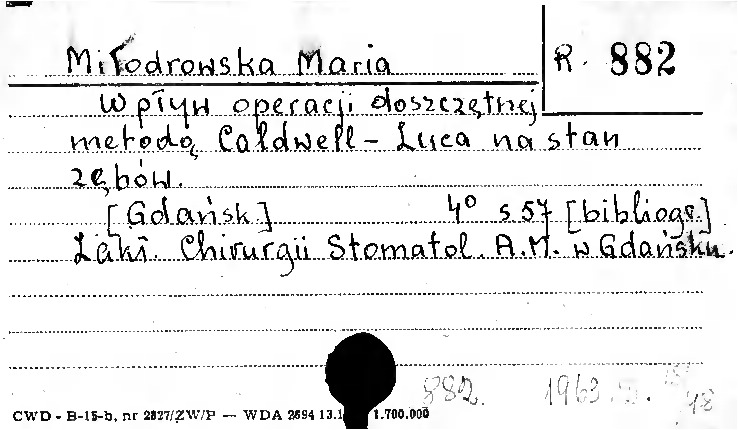 Miłodrowska Maria
R. 882
Wpływ operacji doszczętnej
metodą Caldwell - Luca na stan
zębów.
[Gdańsk] 4° s 57 [bibliogr.]
Zakł. Chirurgii Stomatol. A.M. w Gdańsku.
882. 1963
CWD - B-15-b, nr 2827/ZW/P — WDA 2694 13.1 1.700.000